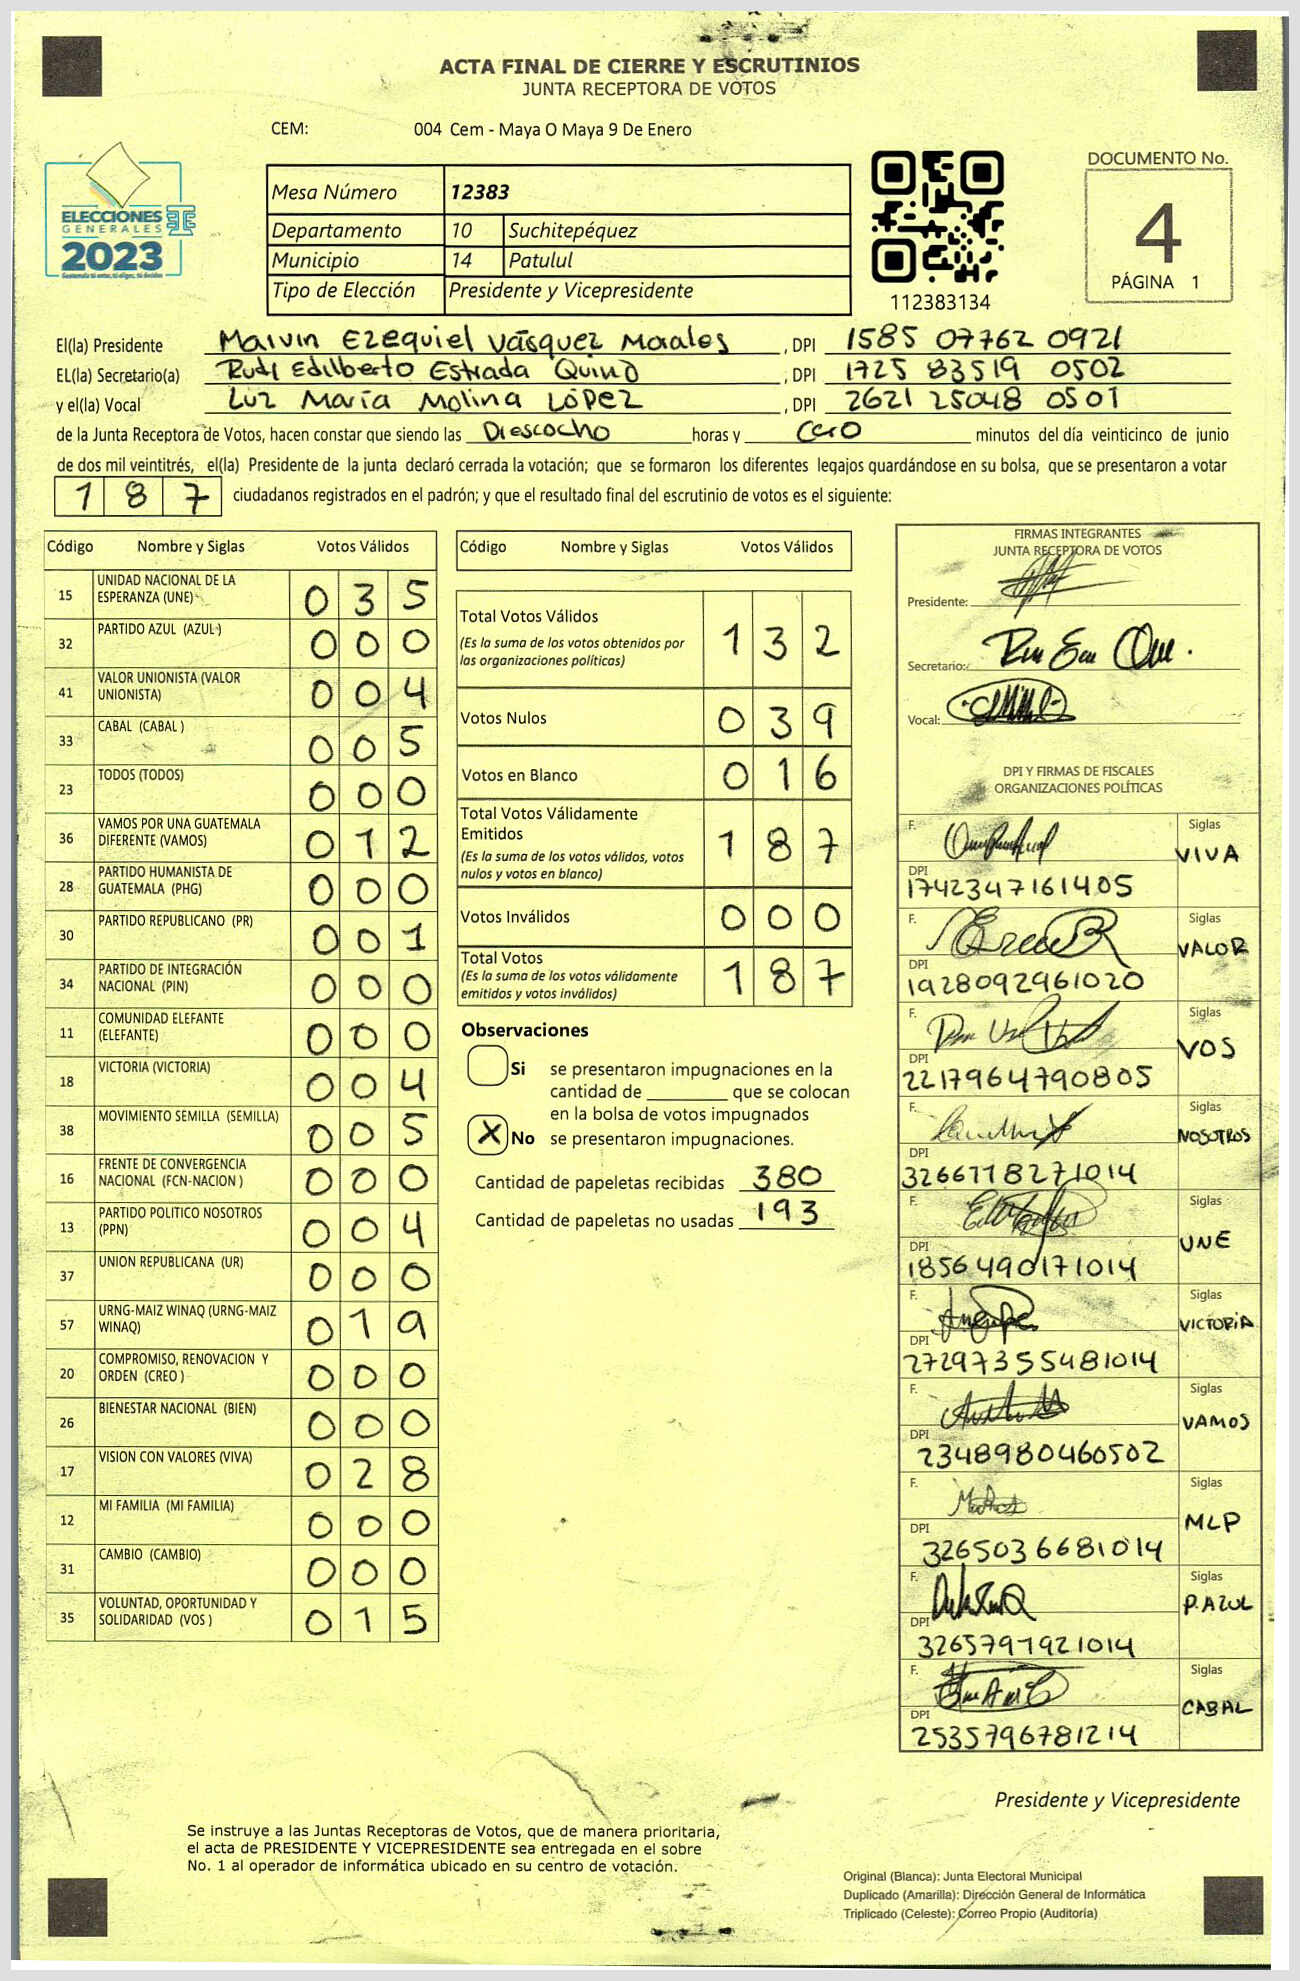 ACTA FINAL DE CIERRE Y ESCRUTINIOS
JUNTA RECEPTORA DE VOTOS
CEM: 004 Cem - Maya O Maya 9 De Enero
ELECCIONES
GENERALES
2023
Guatemala tú entras, tú eliges, tú decides
Mesa Número 12383
Departamento 10 Suchitepéquez
Municipio 14 Patulul
Tipo de Elección Presidente y Vicepresidente
112383134
DOCUMENTO No.
4
PÁGINA 1
El(la) Presidente Marvin Ezequiel Vásquez Morales, DPI 1585 07762 0921
EL(la) Secretario(a) Rudi Edilberto Estrada Quino, DPI 1725 83519 0502
y el(la) Vocal Luz María Molina López, DPI 2621 25048 0501
de la Junta Receptora de Votos, hacen constar que siendo las Diesocho horas y cero minutos del día veinticinco de junio
de dos mil veintitrés, el(la) Presidente de la junta declaró cerrada la votación; que se formaron los diferentes legajos guardándose en su bolsa, que se presentaron a votar
187 ciudadanos registrados en el padrón; y que el resultado final del escrutinio de votos es el siguiente:
Código Nombre y Siglas Votos Válidos
15 UNIDAD NACIONAL DE LA ESPERANZA (UNE) 035
32 PARTIDO AZUL (AZUL) 000
41 VALOR UNIONISTA (VALOR UNIONISTA) 004
33 CABAL (CABAL ) 005
23 TODOS (TODOS) 000
36 VAMOS POR UNA GUATEMALA DIFERENTE (VAMOS) 012
28 PARTIDO HUMANISTA DE GUATEMALA (PHG) 000
30 PARTIDO REPUBLICANO (PR) 001
34 PARTIDO DE INTEGRACIÓN NACIONAL (PIN) 000
11 COMUNIDAD ELEFANTE (ELEFANTE) 000
18 VICTORIA (VICTORIA) 004
38 MOVIMIENTO SEMILLA (SEMILLA) 005
16 FRENTE DE CONVERGENCIA NACIONAL (FCN-NACION ) 000
13 PARTIDO POLITICO NOSOTROS (PPN) 004
37 UNION REPUBLICANA (UR) 000
57 URNG-MAIZ WINAQ (URNG-MAIZ WINAQ) 019
20 COMPROMISO, RENOVACION Y ORDEN (CREO ) 000
26 BIENESTAR NACIONAL (BIEN) 000
17 VISION CON VALORES (VIVA) 028
12 MI FAMILIA (MI FAMILIA) 000
31 CAMBIO (CAMBIO) 000
35 VOLUNTAD, OPORTUNIDAD Y SOLIDARIDAD (VOS ) 015
Código Nombre y Siglas Votos Válidos
Total Votos Válidos 132
(Es la suma de los votos obtenidos por
las organizaciones políticas)
Votos Nulos 039
Votos en Blanco 016
Total Votos Válidamente
Emitidos 187
(Es la suma de los votos válidos, votos
nulos y votos en blanco)
Votos Inválidos 000
Total Votos 187
(Es la suma de los votos válidamente
emitidos y votos inválidos)
Observaciones
Si se presentaron impugnaciones en la
cantidad de ________ que se colocan
en la bolsa de votos impugnados
X No se presentaron impugnaciones.
Cantidad de papeletas recibidas 380
Cantidad de papeletas no usadas 193
FIRMAS INTEGRANTES
JUNTA RECEPTORA DE VOTOS
Presidente:
Secretario:
Vocal:
DPI Y FIRMAS DE FISCALES
ORGANIZACIONES POLÍTICAS
F. Siglas VIVA
DPI 1742347161405
F. Siglas VALOR
DPI 1928092961020
F. Siglas VOS
DPI 2217964790805
F. Siglas NOSOTROS
DPI 3266778271014
F. Siglas UNE
DPI 1856490171014
F. Siglas VICTORIA
DPI 2729735548 1014
F. Siglas VAMOS
DPI 2348980460502
F. Siglas MLP
DPI 3265036681014
F. Siglas P.AZUL
DPI 3265797921014
F. Siglas CABAL
DPI 2535796781214
Presidente y Vicepresidente
Se instruye a las Juntas Receptoras de Votos, que de manera prioritaria,
el acta de PRESIDENTE Y VICEPRESIDENTE sea entregada en el sobre
No. 1 al operador de informática ubicado en su centro de votación.
Original (Blanca): Junta Electoral Municipal
Duplicado (Amarilla): Dirección General de Informática
Triplicado (Celeste): Correo Propio (Auditoría)